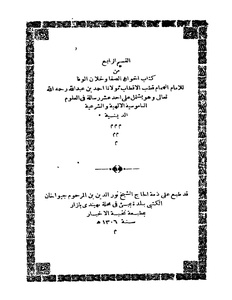 القسم الرابع
من
كتاب اخوان الصفا وخلان الوفا
للامام الهمام قطب الاقطاب مولانا احمد بن عبد الله رحمه الله
تعالى وهو يشتمل على احد عشر رسالة فى العلوم
الناموسية الالهية والشرعية
الدينية
م م م
م م
م
قد طبع على ذمة الحاج الشيخ نور الدين بن المرحوم جيواخان
الكتبى ببلدة بمبئ فى محلة بهيندى بازار
بمطبعة نخبة الاخبار
سنة ١٣٠٦ ھ
م